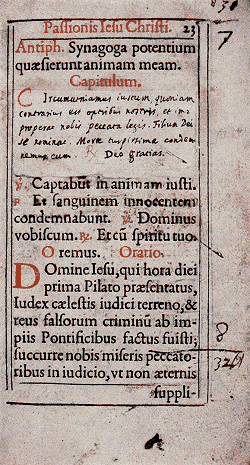 Passionis Iesu Christi. 23
Antiph. Synagoga potentium
quæsierunt animam meam.
Capitulum.
Circumveniamus iustum, quoniam
contrarius est operibus nostris, et im-
properat nobis peccata legis. Filium Dei
se nominat. Morte turpissima condem
nemus eum. ℟ Deo gratias.
℣. Captabūt in animam iusti.
℟ Et sanguinem innocentem
condemnabunt. ℣. Dominus
vobiscum. ℟. Et cū spiritu tuo.
Oremus. Oratio.
DOmine Iesu, qui hora diei
prima Pilato præsentatus,
Iudex cælestis iudici terreno, &
reus falsorum criminū ab im-
piis Pontificibus factus fuisti;
succurre nobis miseris peccato-
ribus in iudicio, vt non æternis
suppli-
7
8